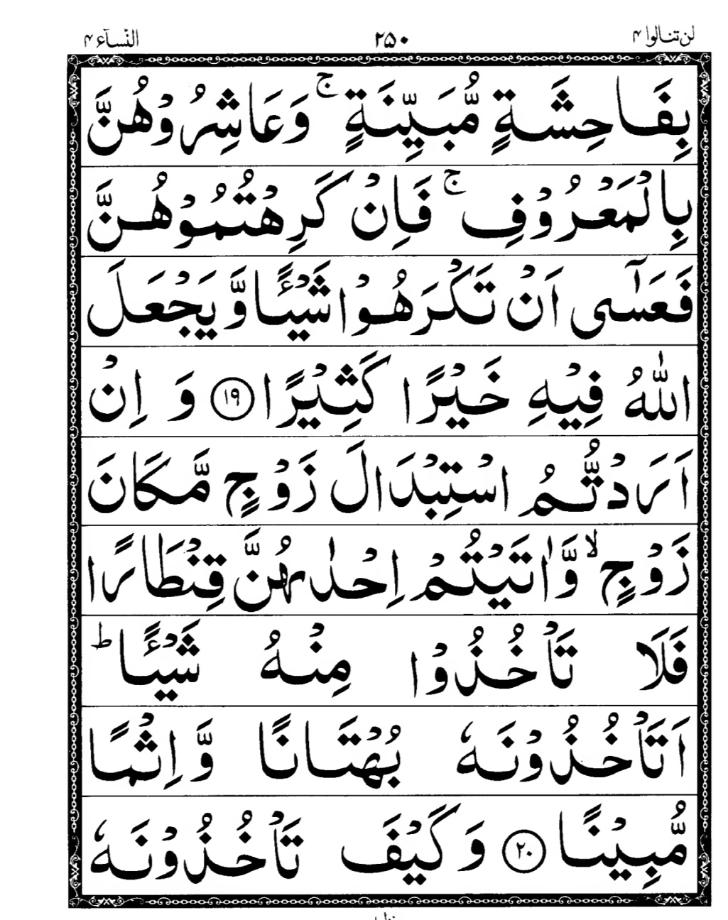 لن تنالوا ۴ ۲۵۰ النسآء ۴
بِفَاحِشَةٍ مُّبَيِّنَةٍ ۚ وَعَاشِرُوْهُنَّ
بِالْمَعْرُوْفِ ۚ فَاِنْ كَرِهْتُمُوْهُنَّ
فَعَسٰٓى اَنْ تَكْرَهُوْا شَيْـًٔا وَّ يَجْعَلَ
اللّٰهُ فِيْهِ خَيْرًا كَثِيْرًا ﴿۱۹﴾ وَ اِنْ
اَرَدْتُّمُ اسْتِبْدَالَ زَوْجٍ مَّكَانَ
زَوْجٍ ۙ وَّاٰتَيْتُمْ اِحْدٰىهُنَّ قِنْطَارًا
فَلَا تَاْخُذُوْا مِنْهُ شَيْـًٔا ؕ
اَتَاْخُذُوْنَهٗ بُهْتَانًا وَّ اِثْمًا
مُّبِيْنًا ﴿۲۰﴾ وَكَيْفَ تَاْخُذُوْنَهٗ